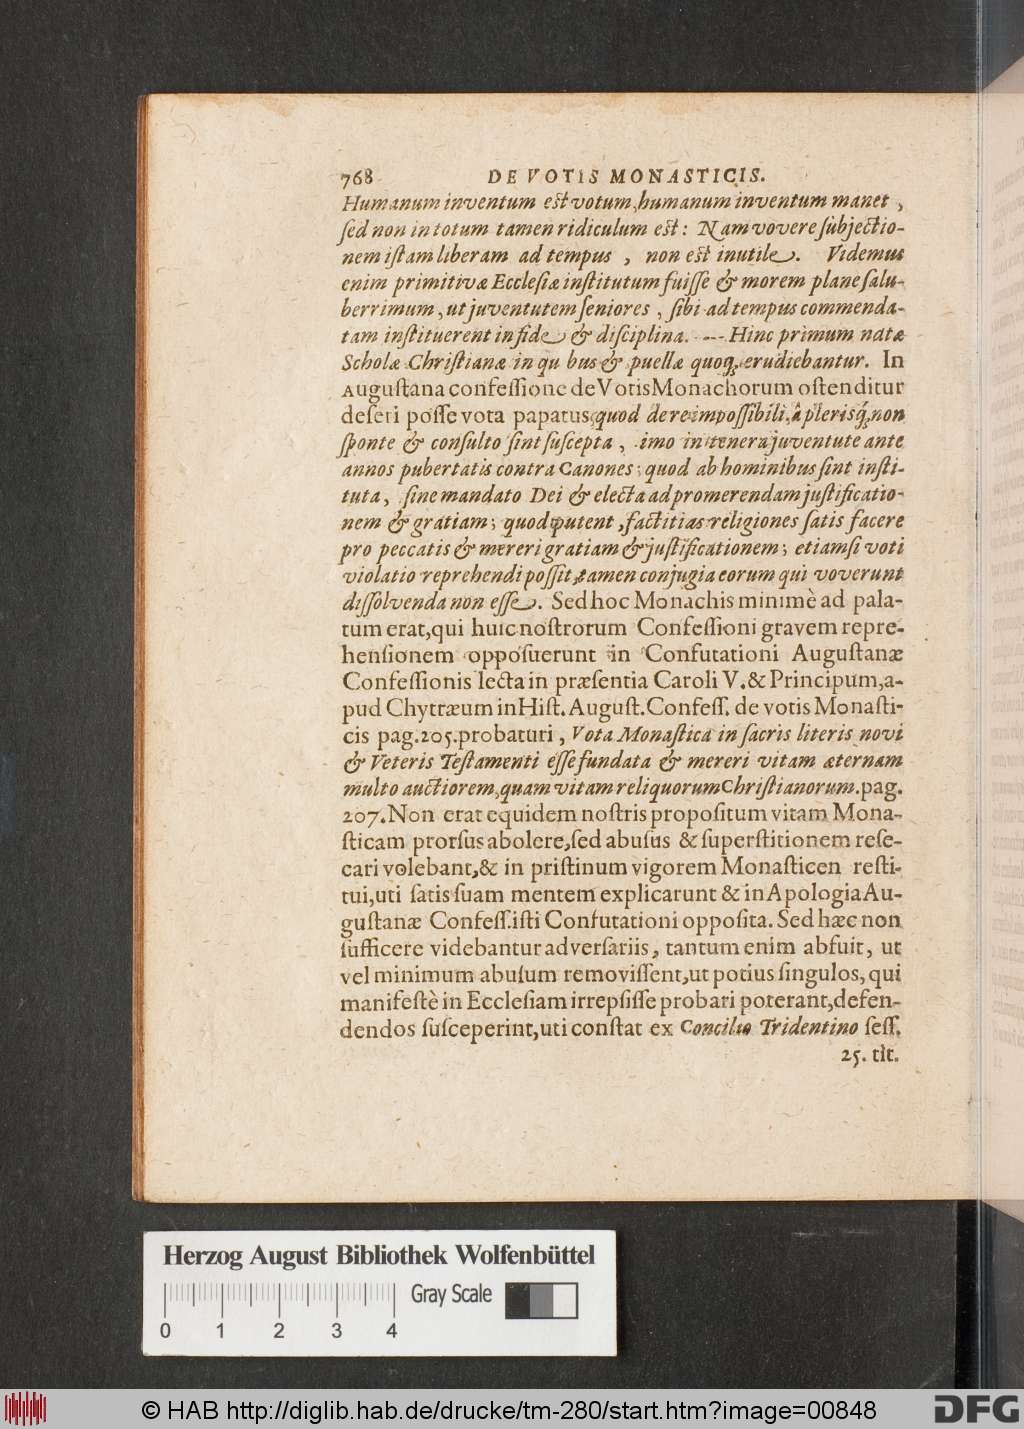 768 DE VOTIS MONASTICIS.
Humanum inventum eſt votum, humanum inventum manet,
ſed non in totum tamen ridiculum eſt: Nam vovere ſubjectio-
nem iſtam liberam ad tempus, non eſt inutile. Videmus
enim primitivæ Eccleſiæ inſtitutum fuiſſe & morem plane ſalu-
berrimum, ut juventutem ſeniores, ſibi ad tempus commenda-
tam inſtituerent in fide & diſciplina. --- Hinc primum natæ
Scholæ Chriſtianæ in qu bus & puellæ quoq; erudiebantur. In
Auguſtana confeſſione de Votis Monachorum oſtenditur
deſeri poſſe vota papatus quod de re impoſſibili, à plerisq́; non
ſponte & conſulto ſint ſuſcepta, imo in tenera juventute ante
annos pubertatis contra Canones; quod ab hominibus ſint inſti-
tuta, ſine mandato Dei & electa ad promerendam juſtificatio-
nem & gratiam; quod putent, factitias religiones ſatis facere
pro peccatis & mereri gratiam & juſtificationem; etiamſi voti
violatio reprehendi poſſit, tamen conjugia eorum qui voverunt
diſſolvenda non eſſe. Sed hoc Monachis minimè ad pala-
tum erat, qui huic noſtrorum Confeſſioni gravem repre-
henſionem oppoſuerunt in Confutationi Auguſtanæ
Confeſſionis lecta in præſentia Caroli V. & Principum, a-
pud Chytræum in Hiſt. Auguſt. Confeſſ. de votis Monaſti-
cis pag. 205. probaturi, Vota Monaſtica in ſacris literis novi
& Veteris Teſtamenti eſſe fundata & mereri vitam æternam
multo auctiorem, quam vitam reliquorum Chriſtianorum. pag.
207. Non erat equidem noſtris propoſitum vitam Mona-
ſticam prorſus abolere, ſed abuſus & ſuperſtitionem reſe-
cari volebant, & in priſtinum vigorem Monaſticen reſti-
tui, uti ſatis ſuam mentem explicarunt & in Apologia Au-
guſtanæ Confeſſ. iſti Confutationi oppoſita. Sed hæc non
ſufficere videbantur adverſariis, tantum enim abfuit, ut
vel minimum abuſum removiſſent, ut potius ſingulos, qui
manifeſtè in Eccleſiam irrepſiſſe probari poterant, defen-
dendos ſuſceperint, uti conſtat ex Concilio Tridentino ſeſſ.
25. tit.
Herzog August Bibliothek Wolfenbüttel
Gray Scale
0 1 2 3 4
© HAB http://diglib.hab.de/drucke/tm-280/start.htm?image=00848
DFG